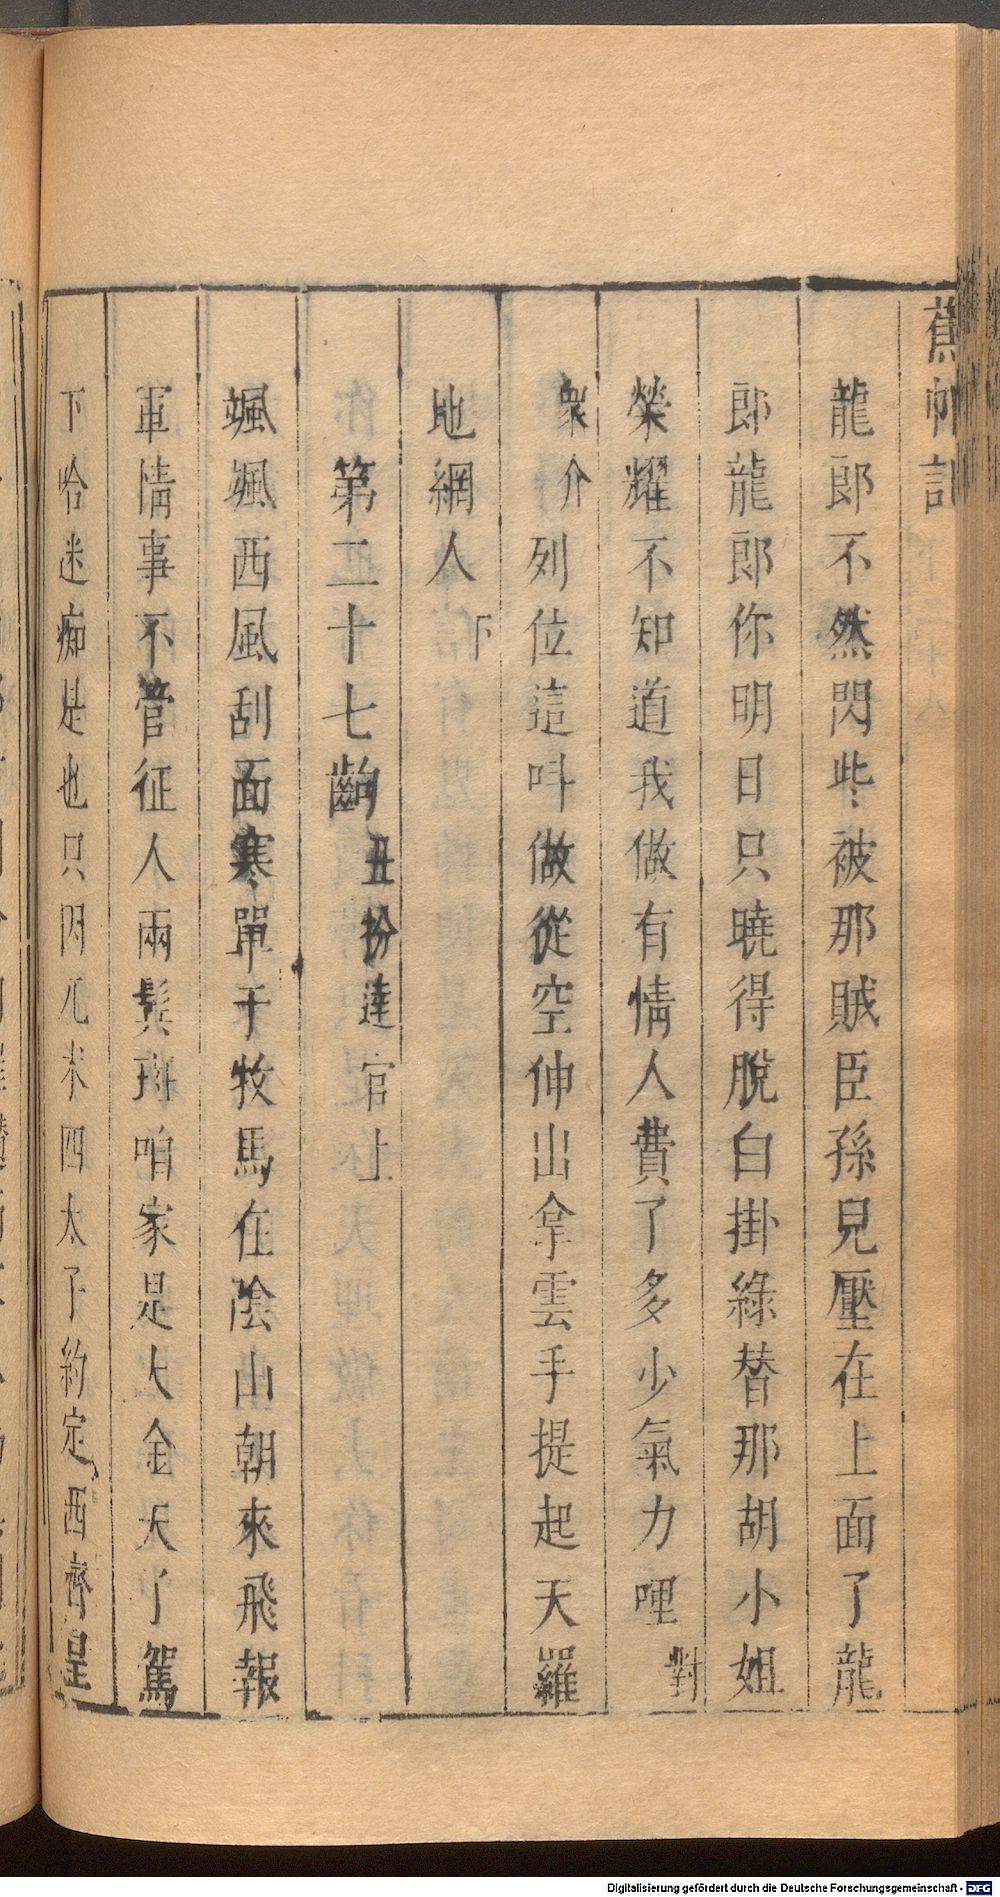 蕉帕記
龍郎不然閃些被那賊臣孫兒壓在上面了龍
郎龍郎你明日只曉得脫白掛綠替那胡小姐
榮耀不知道我做有情人費了多少氣力哩對
衆介列位這呌做從空伸出拿雲手提起天羅
地網人下
第二十七齣丑扮達官上
颯颯西風刮面寒單于牧馬在陰山朝來飛報
軍情事不管征人兩鬢斑咱家是大金天了駕
下哈迷痴是也只因兀朮四太子約定西齊皇
Digitalisierung gefördert durch die Deutsche Forschungsgemeinschaft - DFG